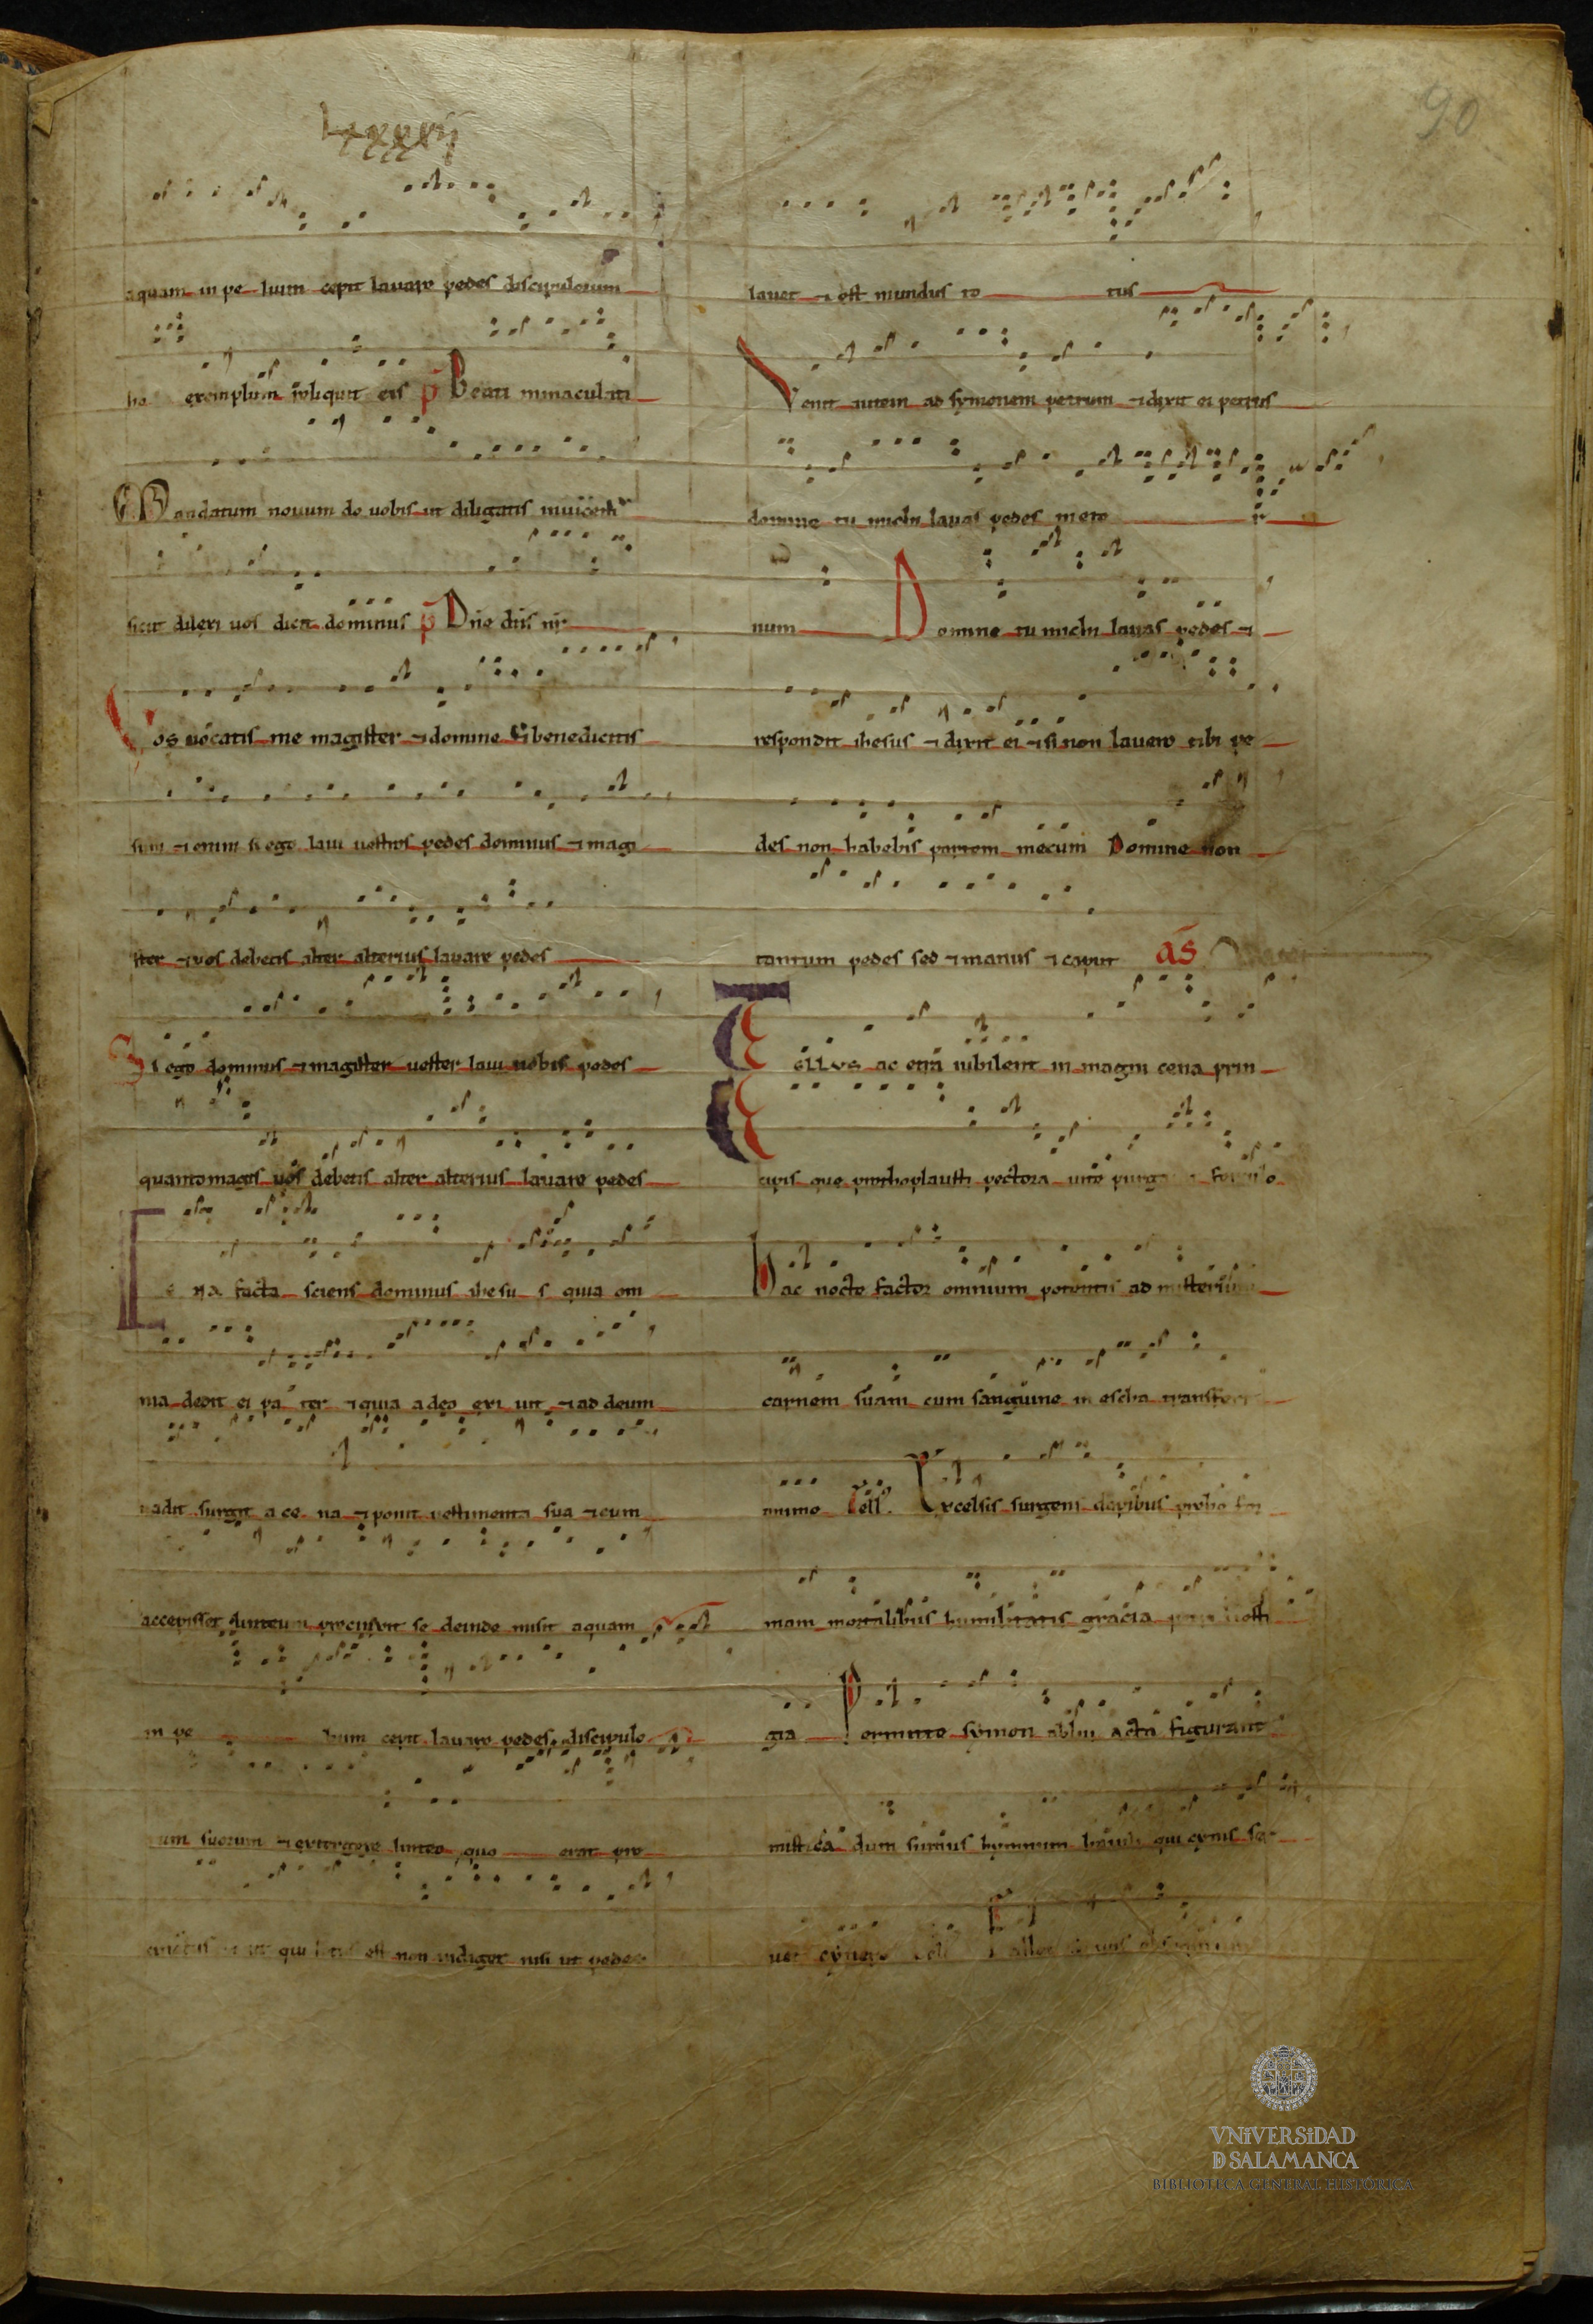 90
lxxxvij
aquam in peluim cepit lavare pedes discipulorum
exemplum reliquit eis p Beati inmaculati
Mandatum novum do vobis ut diligatis invicem
sicut dilexi vos dicit dominus p Dñe dñs nr
Vos vocatis me magister ⁊ domine ⁊ benedicitis
sum ⁊ enim si ego lavi vestros pedes dominus ⁊ magi
ster ⁊ vos debetis alter alterius lavare pedes
Si ego dominus ⁊ magister vester lavi vobis pedes
quanto magis vos debetis alter alterius lavare pedes
Cena facta sciens dominus ihesus quia om
nia dedit ei pater ⁊ quia a deo exivit ⁊ ad deum
vadit surgit a cena ⁊ ponit vestimenta sua ⁊ cum
accepisset linteum precinxit se deinde misit aquam
in pe luim cepit lavare pedes discipulo
rum suorum ⁊ extergere linteo quo erat pre
cinctus qui lotus est non indiget nisi ut pedes
lavet ⁊ est mundus to tus
Venit autem ad symonem petrum ⁊ dixit ei petrus
domine tu michi lavas pedes in eter
num Domine tu michi lavas pedes ⁊
respondit ihesus ⁊ dixit ei ⁊ si non lavero tibi pe
des non habebis partem mecum Domine non
tantum pedes sed ⁊ manus ⁊ caput as
Tellus ac etra iubilent in magni cena prin
cipis que prothoplausti pectora vite purg
hac nocte factor omnium potentis ad misterium
carnem suam cum sanguine in escha transfert
anime Tell. Excelsis surgens dapibus prebe for
mam mortalibus humilitatis gracia petri
gia Permitte symon ablui acta figurant
mistica dum summus hymnum baiuli qui cynis ser
vet cynere Tell Fallax
VNiVERSiDAD
D SALAMANCA
BIBLIOTECA GENERAL HISTÓRICA